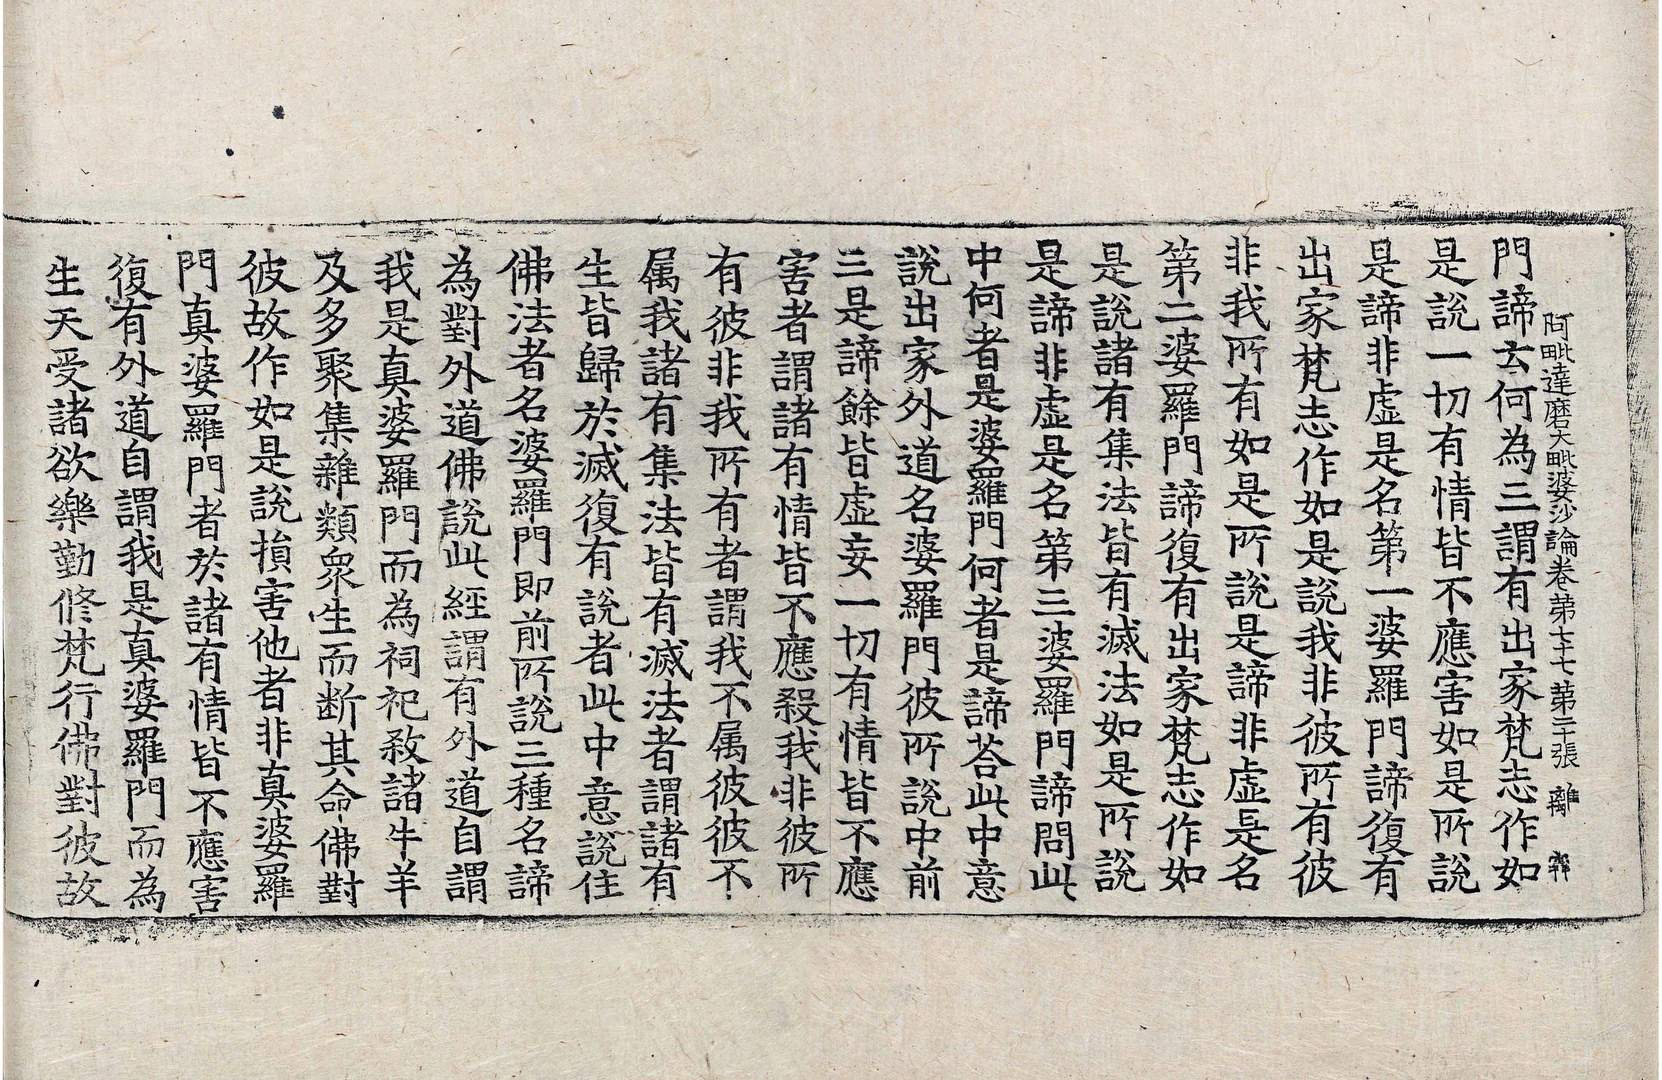 阿毗達磨大毗婆沙論卷第七十七 第二十張 離
門諦云何為三謂有出家梵志作如
是說一切有情皆不應害如是所說
是諦非虛是名第一婆羅門諦復有
出家梵志作如是說我非彼所有彼
非我所有如是所說是諦非虛是名
第二婆羅門諦復有出家梵志作如
是說諸有集法皆有滅法如是所說
是諦非虛是名第三婆羅門諦問此
中何者是婆羅門何者是諦荅此中意
說出家外道名婆羅門彼所說中前
三是諦餘皆虛妄一切有情皆不應
害者謂諸有情皆不應殺我非彼所
有彼非我所有者謂我不属彼彼不
属我諸有集法皆有滅法者謂諸有
生皆歸於滅復有說者此中意說住
佛法者名婆羅門即前所說三種名諦
為對外道佛說此經謂有外道自謂
我是真婆羅門而為祠祀敎諸牛羊
及多聚集雜類衆生而断其命佛對
彼故作如是說損害他者非真婆羅
門真婆羅門者於諸有情皆不應害
復有外道自謂我是真婆羅門而為
生天受諸欲樂勤修梵行佛對彼故